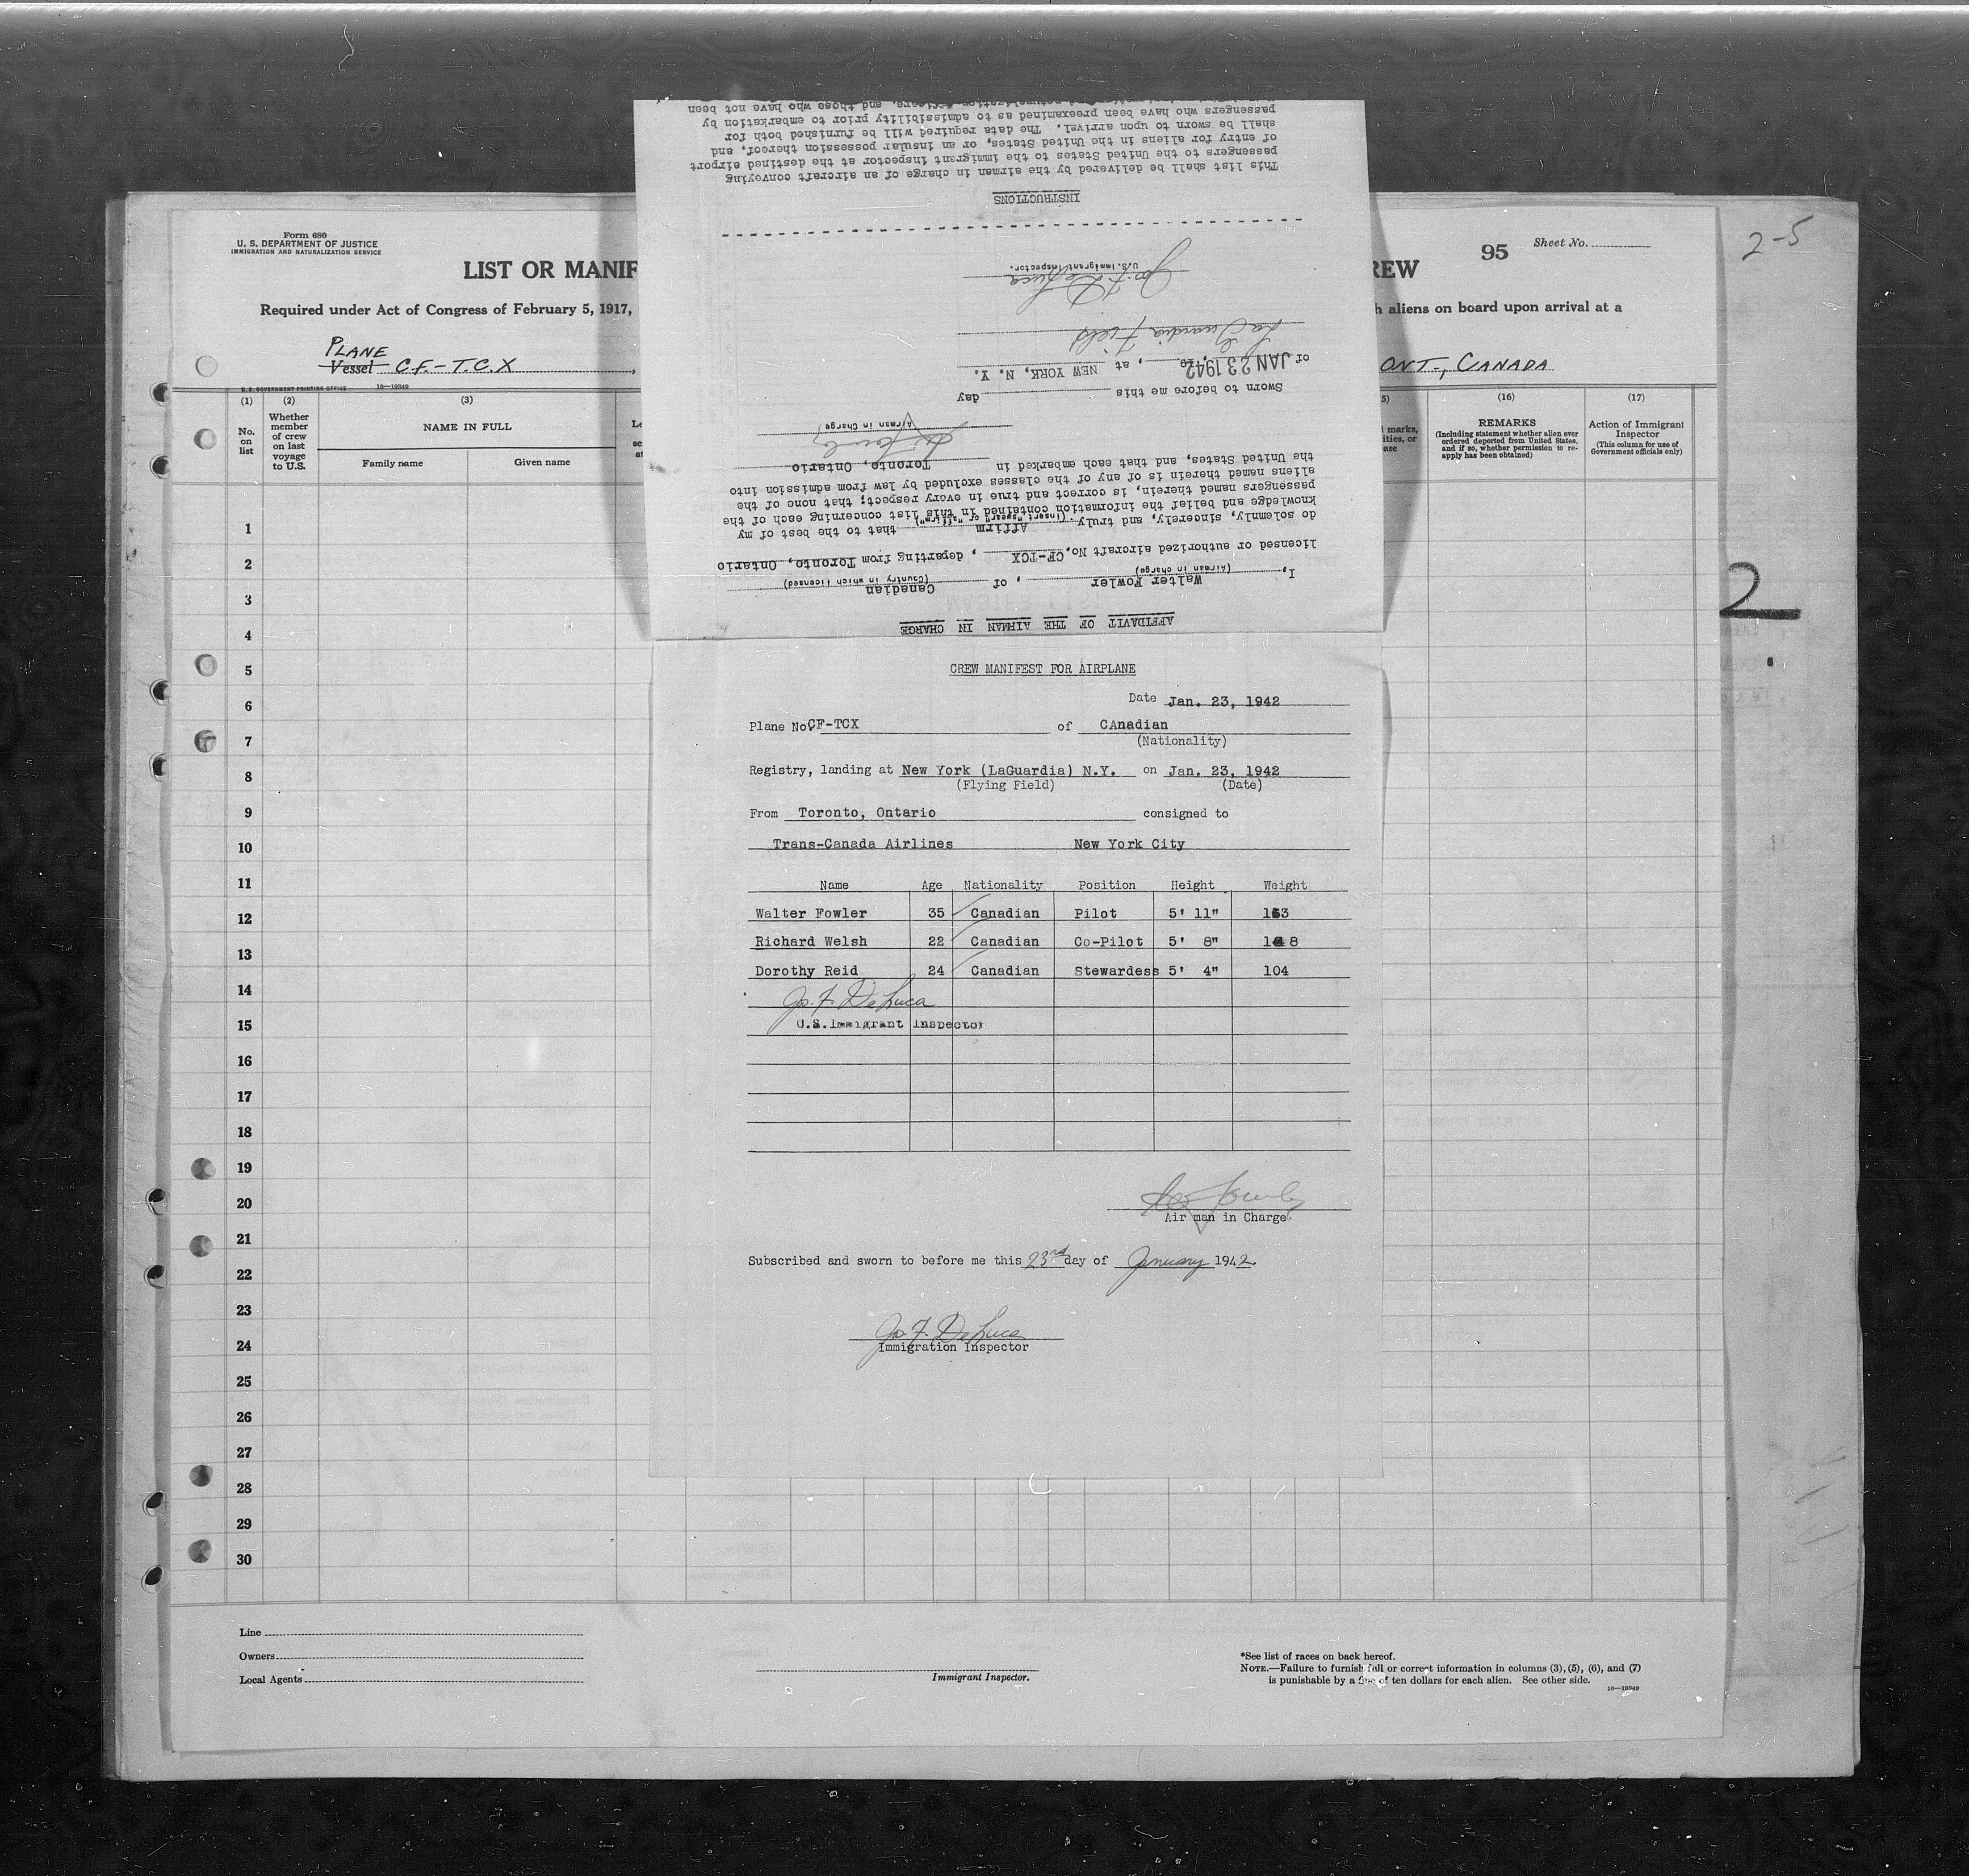 2-5
Form 680
U. S. DEPARTMENT OF JUSTICE
IMMIGRATION AND NATURALIZATION SERVICE
95 Sheet No.
LIST OR MANIF
REW
Required under Act of Congress of February 5, 1917,
h aliens on board upon arrival at a
PLANE
Vessel C.F.-T.C.X
ONT-, CANADA
U.S. GOVERNMENT PRINTING OFFICE 16—19349
(1) (2) (3) 5) (16) (17)
No. on list
Whether member of crew on last voyage to U.S.
NAME IN FULL
Family name Given name
marks, ities, or ase
REMARKS
(Including statement whether alien ever ordered deported from United States, and if so, whether permission to reapply has been obtained)
Action of Immigrant Inspector
(This column for use of Government officials only)
1
2
3
4
5
6
7
8
9
10
11
12
13
14
15
16
17
18
19
20
21
22
23
24
25
26
27
28
29
30
2
AFFIDAVIT OF THE AIRMAN IN CHARGE
I, Walter Fowler, of Canadian
(Airman in charge) (Country in which licensed)
licensed or authorized aircraft No. CF-TCX, departing from Toronto, Ontario
do solemnly, sincerely, and truly Affirm that to the best of my
(insert "swear" or "affirm")
knowledge and belief the information contained in this list concerning each of the
passengers named therein, is correct and true in every respect; that none of the
aliens named therein is of any of the classes excluded by law from admission into
the United States, and that each embarked in Toronto, Ontario
(Airman in Charge)
Sworn to before me this day
of JAN 23 1942, at NEW YORK, N. Y.
La Guardia Field
Jos. F. DeLuca
U.S. Immigrant Inspector.
INSTRUCTIONS
This list shall be delivered by the airman in charge of an aircraft conveying
passengers to the United States to the immigrant inspector at the destined airport
of entry for aliens in the United States, or an insular possession thereof, and
shall be sworn to upon arrival. The data required will be furnished both for
passengers who have been preexamined as to admissibility prior to embarkation by
immigration and naturalization officers, and those who have not been
CREW MANIFEST FOR AIRPLANE
Date Jan. 23, 1942
Plane No. CF-TCX of CAnadian
(Nationality)
Registry, landing at New York (LaGuardia) N.Y. on Jan. 23, 1942
(Flying Field) (Date)
From Toronto, Ontario consigned to
Trans-Canada Airlines New York City
Name Age Nationality Position Height Weight
Walter Fowler 35 Canadian Pilot 5' 11" 163
Richard Welsh 22 Canadian Co-Pilot 5' 8" 148
Dorothy Reid 24 Canadian Stewardess 5' 4" 104
Jos. F. DeLuca
U.S. Immigrant Inspector
Air man in Charge
Subscribed and sworn to before me this 23rd day of January 1942.
Jos. F. DeLuca
Immigration Inspector
Line
Owners
Local Agents
Immigrant Inspector.
*See list of races on back hereof.
NOTE.—Failure to furnish full or correct information in columns (3), (5), (6), and (7)
is punishable by a fine of ten dollars for each alien. See other side.
16—19349